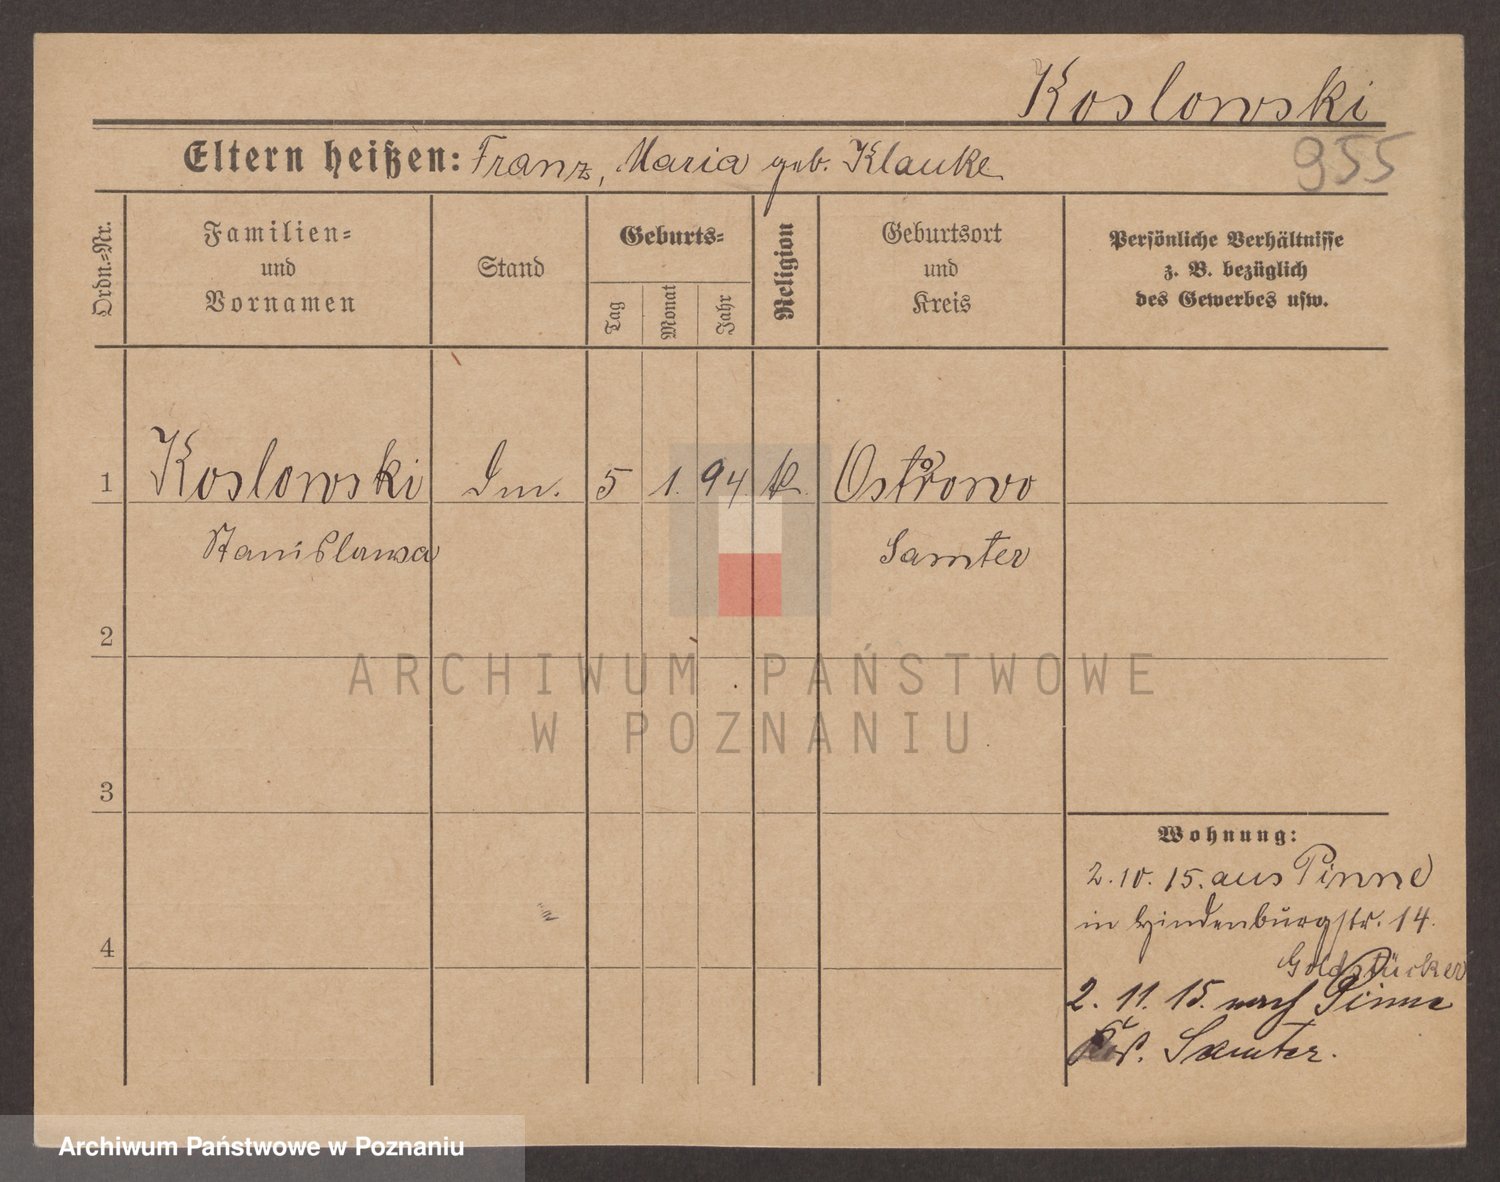 Koslowski
955
Eltern heißen: Franz, Maria geb. Klauke
Ordn.=Nr.
Familien=
und
Vornamen
Stand
Geburts=
Tag
Monat
Jahr
Religion
Geburtsort
und
Kreis
Persönliche Verhältnisse
z. B. bezüglich
des Gewerbes usw.
1 Koslowski 5 1. 94 k. Ostrowo
Stanislawa Samter
2
ARCHIWUM PAŃSTWOWE
W POZNANIU
3
Wohnung:
2. 10. 15. aus Pinne
in Hindenburgstr. 14.
Goldstücker
4
2. 11. 15. nach Pinne
Samter.
Archiwum Państwowe w Poznaniu